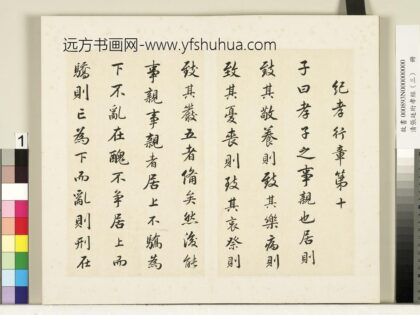 远方书画网-www.yfshuhua.com
紀孝行章第十
子曰孝子之事親也居則
致其敬養則致其樂病則
致其憂喪則致其哀祭則
致其嚴五者備矣然後能
事親事親者居上不驕為
下不亂在醜不爭居上而
驕則亡為下而亂則刑在
1